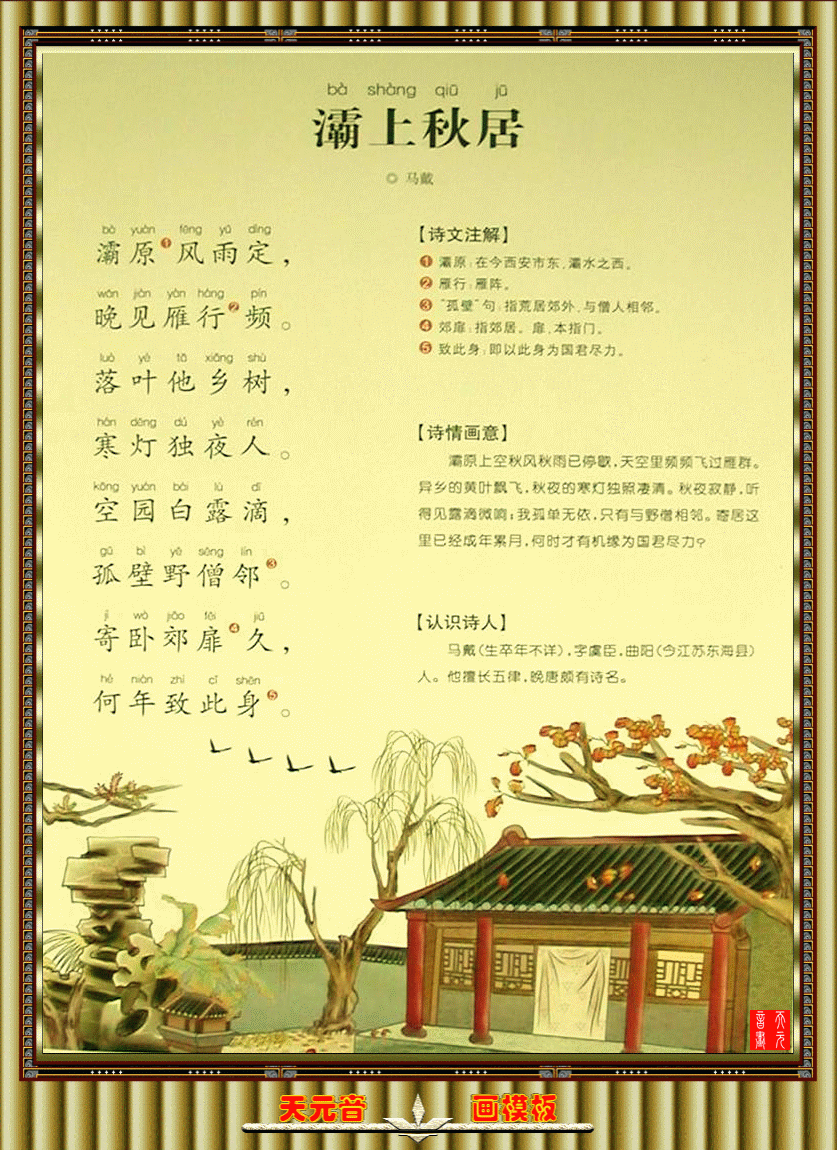 bà shàng qiū jū
灞上秋居
◎ 马戴
bà yuán fēng yǔ dìng
灞原❶风雨定，
wǎn jiàn yàn háng pín
晚见雁行❷频。
luò yè tā xiāng shù
落叶他乡树，
hán dēng dú yè rén
寒灯独夜人。
kōng yuán bái lù dī
空园白露滴，
gū bì yě sēng lín
孤壁野僧邻❸。
jì wò jiāo fēi jiǔ
寄卧郊扉❹久，
hé nián zhì cǐ shēn
何年致此身❺。
【诗文注解】
❶ 灞原：在今西安市东，灞水之西。
❷ 雁行：雁阵。
❸ “孤壁”句：指荒居郊外，与僧人相邻。
❹ 郊扉：指郊居。扉，本指门。
❺ 致此身：即以此身为国君尽力。
【诗情画意】
灞原上空秋风秋雨已停歇，天空里频频飞过雁群。
异乡的黄叶飘飞，秋夜的寒灯独照凄清。秋夜寂静，听
得见露滴微响；我孤单无依，只有与野僧相邻。寄居这
里已经成年累月，何时才有机缘为国君尽力？
【认识诗人】
马戴（生卒年不详），字虞臣，曲阳（今江苏东海县）
人。他擅长五律，晚唐颇有诗名。
天元音画
天元音 画模板